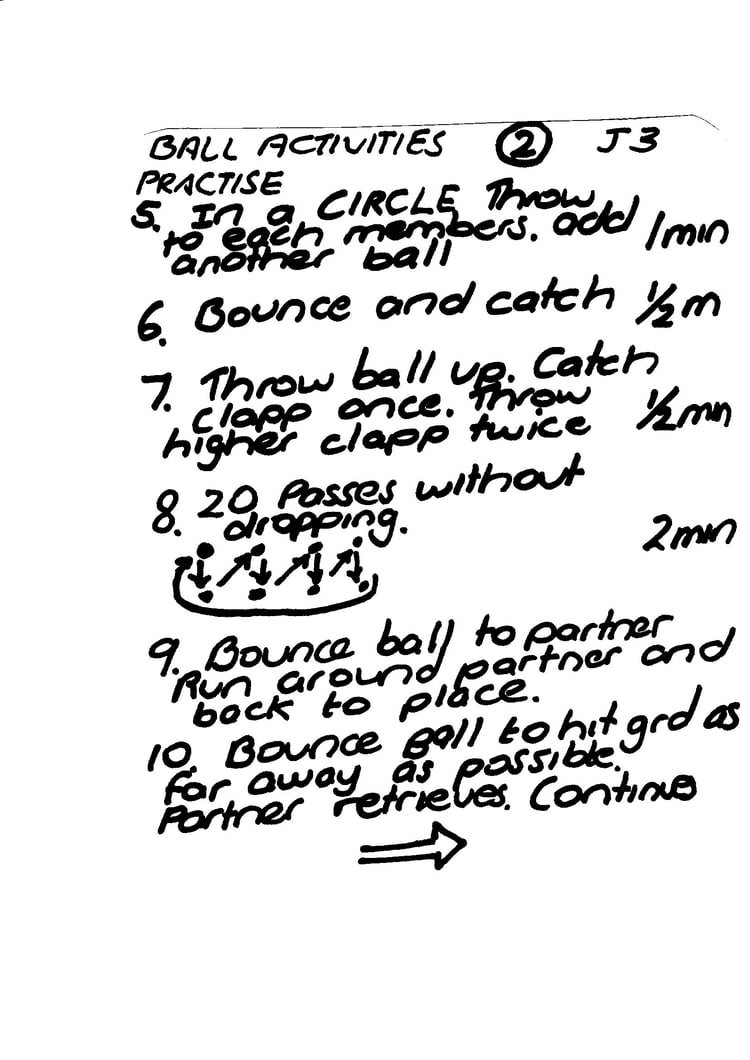 BALL ACTIVITIES ② J3
PRACTISE
5. In a CIRCLE Throw
to each members. add 1min
another ball
6. Bounce and catch ½m
7. Throw ball up. Catch
clapp once. Throw ½mn
higher clapp twice
8. 20 Passes without
dropping.
2min
9. Bounce ball to partner
Run around partner and
back to place.
10. Bounce ball to hit grd as
far away as possible.
Partner retrieves. Continue